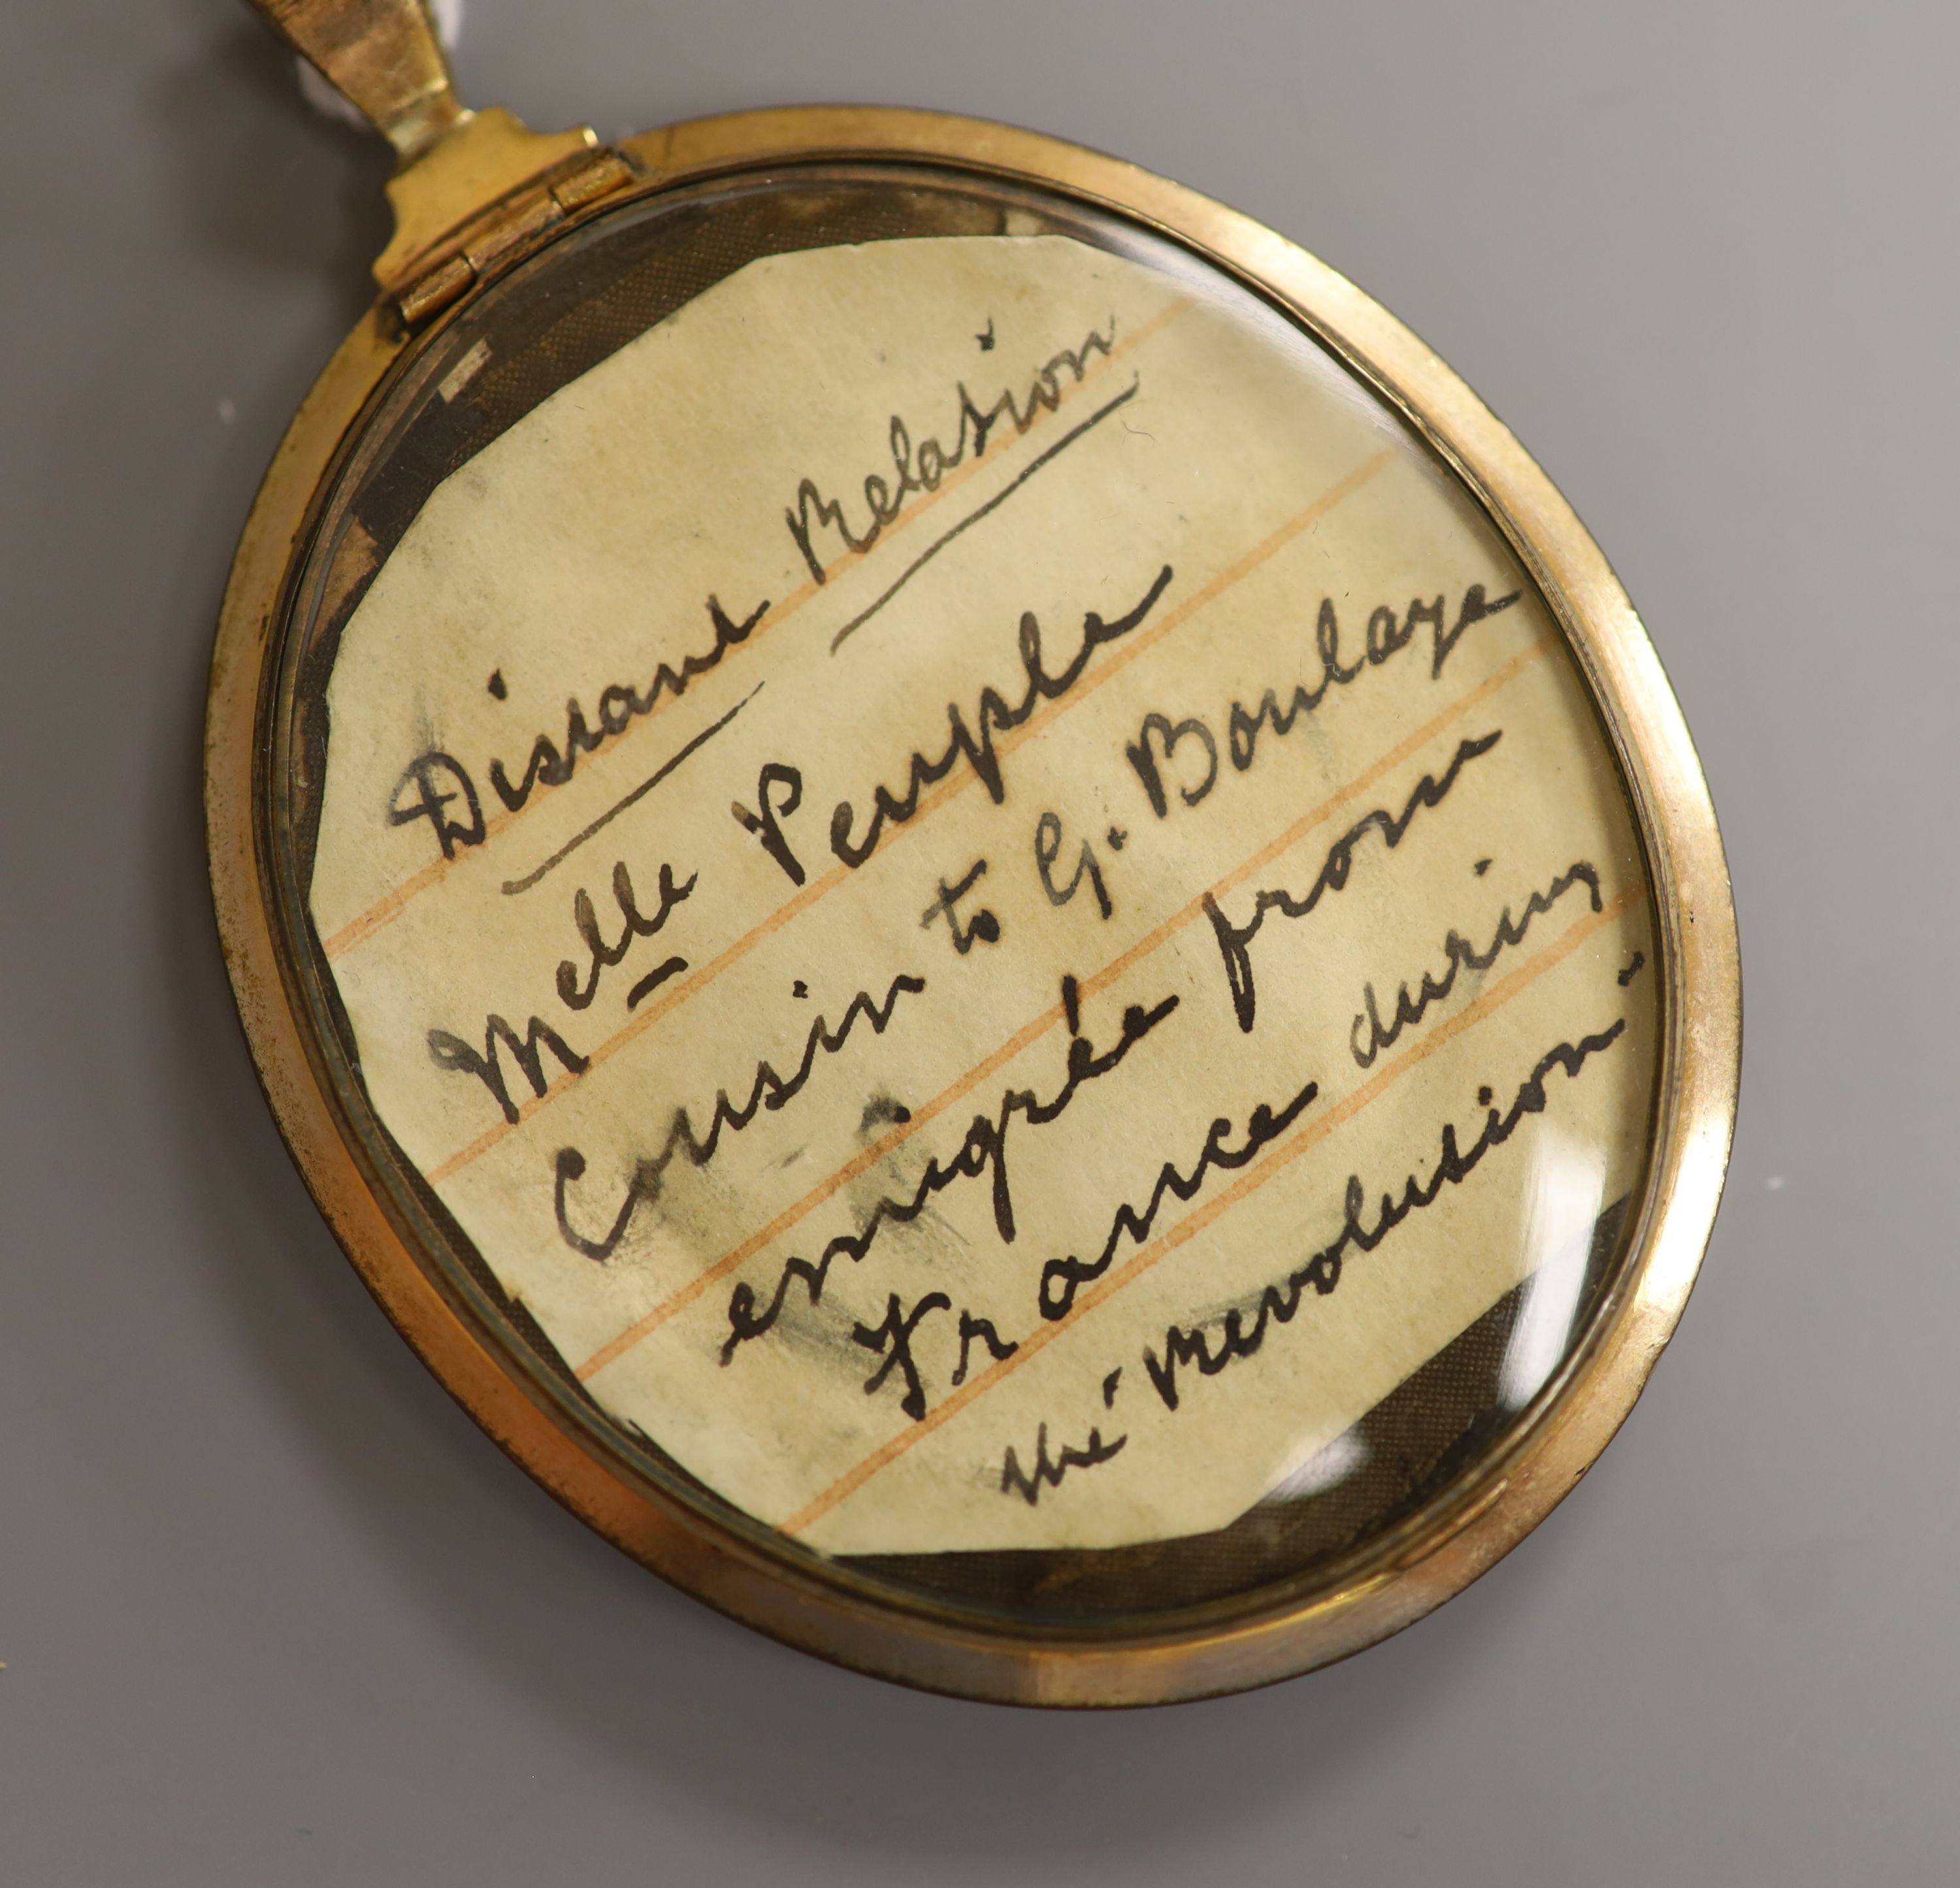 Distant Relation
Melle Peuple
Cousin to G. Boulaye
emigrée from
France during
the Revolution.